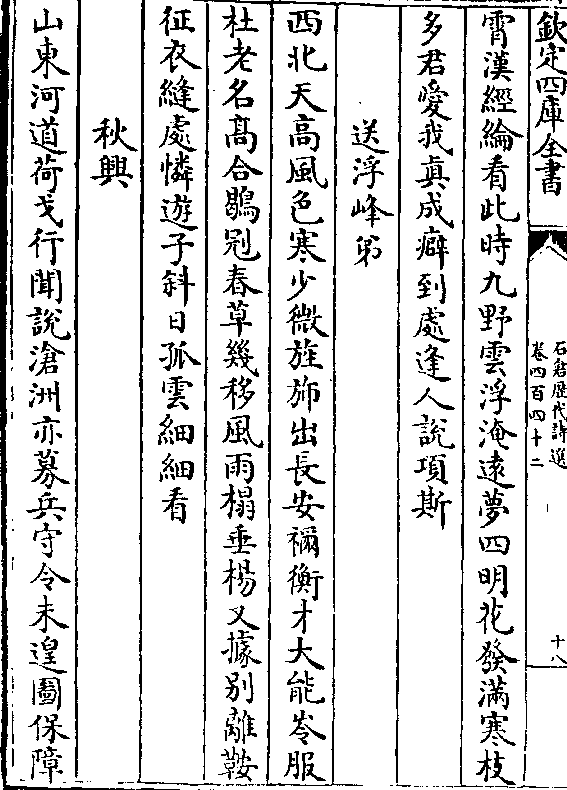 欽定四庫全書
石倉歷代詩選
卷四百四十二
十八
霄漢經綸看此時九野雲浮淹遠夢四明花發滿寒枝
多君愛我真成癖到處逢人說項斯
送浮峰弟
西北天高風色寒少微旌斾出長安禰衡才大能岑服
杜老名髙合鶡冠春草幾移風雨榻垂楊又據别離鞍
征衣縫處憐遊子斜日孤雲細細看
秋興
山東河道荷戈行聞說滄洲亦募兵守令未遑圖保障